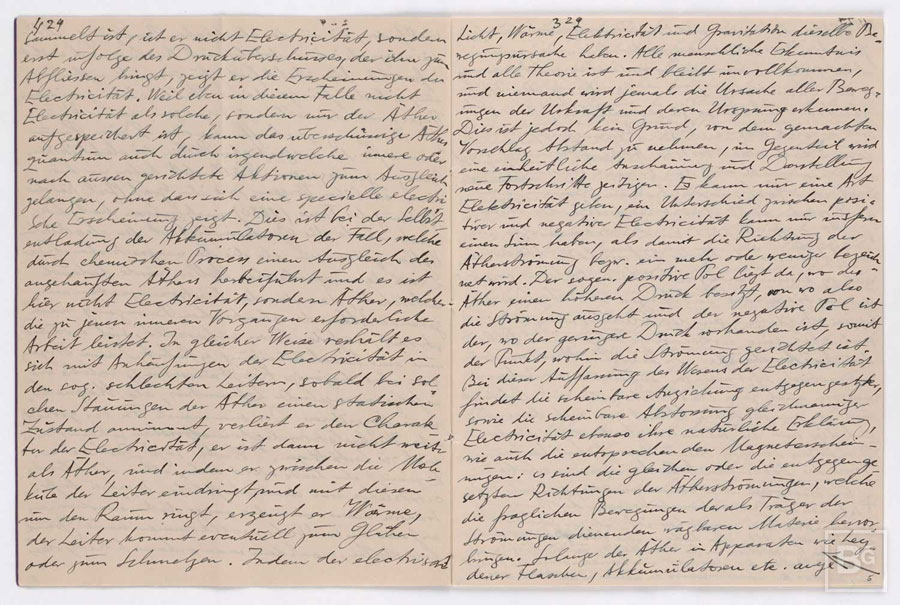 429
sammelt ist, ist er nicht Electricität, sondern
erst infolge des Drucküberschusses, der ihn zum
Abfliessen bringt, zeigt er die Erscheinungen der
Electricität. Weil eben in diesem Falle nicht
Electricität als solche, sondern nur der Äther
aufgespeichert ist, kann das überschüssige Äther
quantum auch durch irgendwelche innere oder
nach aussen gerichtete Aktionen zum Ausgleich
gelangen, ohne dass sich eine specielle electri
sche Erscheinung zeigt. Dies ist bei der Selbst
entladung der Akkumulatoren der Fall, welche
durch chemischen Process einen Ausgleich des
angehäuften Äthers herbeiführt und es ist
hier nicht Electricität, sondern Äther, welcher
die zu jenen inneren Vorgängen erforderliche
Arbeit leistet. In gleicher Weise verhält es
sich mit Anhäufungen der Electricität in
den sog. schlechten Leitern, sobald bei sol
chen Stauungen der Äther einen statischen
Zustand annimmt, verliert er den Charak
ter der Electricität, er ist dann nicht weiter
als Äther, und indem er zwischen die Mole
küle der Leiter eindringt, und mit diesen
um den Raum ringt, erzeugt er Wärme,
der Leiter kommt eventuell zum Glühen
oder zum Schmelzen. Indem der electrische
329
Licht, Wärme, Elektricität und Gravitation dieselbe Be
wegungsursache haben. Alle menschliche Erkenntnis
und alle Theorie ist und bleibt unvollkommen,
und niemand wird jemals die Ursache aller Beweg-
ungen der Urkraft und deren Ursprung erkennen.
Dies ist jedoch kein Grund, von dem gemachten
Vorschlag Abstand zu nehmen, im Gegenteil wird
eine einheitliche Anschauung und Darstellung
neue Fortschritte zeitigen. Es kann nur eine Art
Elektricität geben, ein Unterschied zwischen posi-
tiver und negativer Electricität kann nur insofern
einen Sinn haben, als damit die Richtung der
Ätherströmung bezw. ein mehr oder weniger bezeich
net wird. Der sogen. positive Pol liegt da, wo der
Äther einen höheren Druck besitzt, von wo also
die Strömung ausgeht und der negative Pol ist
der, wo der geringere Druck vorhanden ist, somit
der Punkt, wohin die Strömung gerichtet ist.
Bei dieser Auffassung des Wesens der Electricität
findet die scheinbare Anziehung entgegengesetzter,
sowie die scheinbare Abstossung gleichnamiger
Electricität ebenso ihre natürliche Erklärung,
wie auch die entsprechenden Magneterschei-
nungen: es sind die gleichen oder die entgegenge
setzten Richtungen der Ätherströmungen, welche
die fraglichen Bewegungen der als Träger der
Strömungen dienenden wägbaren Materie hervor
bringen. Solange der Äther in Apparaten wie Ley
dener Flaschen, Akkumulatoren etc. ange
5